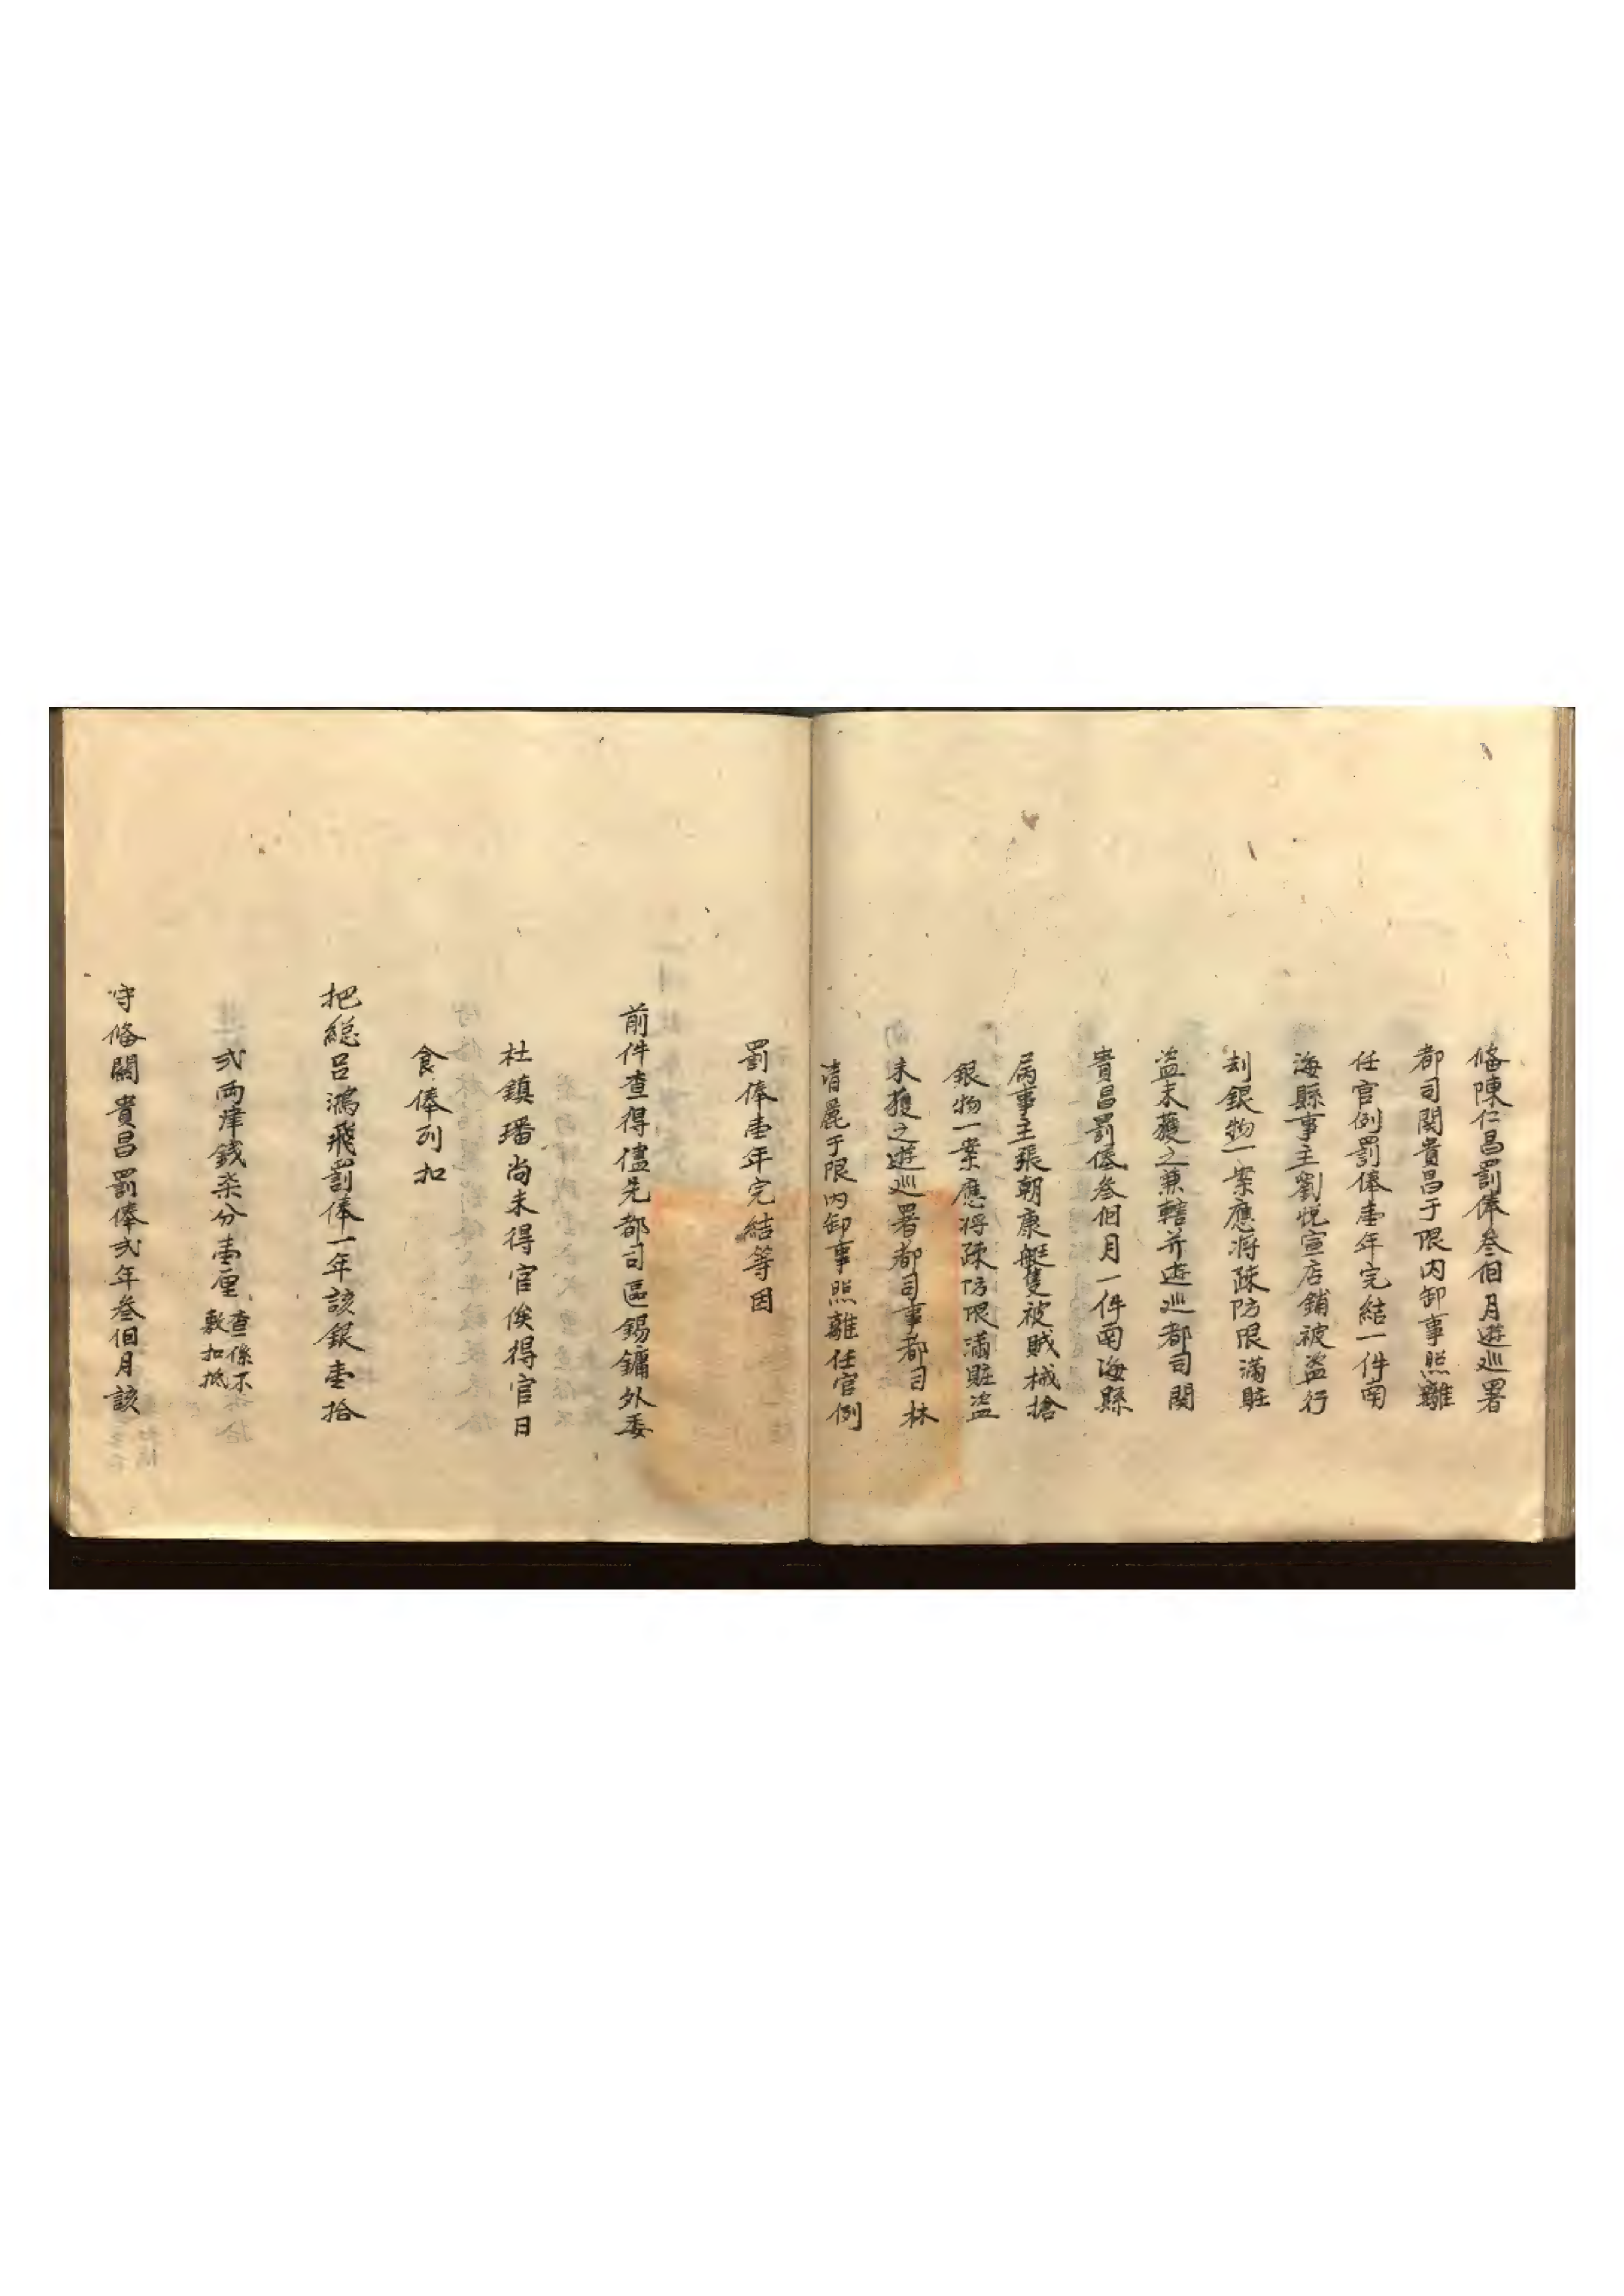 俻陳仁昌罰俸叁個月遊巡署
都司関貴昌于限内卸事照離
任官例罰俸壹年完結一件南
海縣事主劉悦宣店鋪被盗行
刦銀物一案應將疎防限滿賍
盗未獲之兼轄并遊巡都司関
貴昌罰俸叁個月一件南海縣
属事主張朝康艇隻被賊械搶
銀物一案應将疎防限滿賍盗
未獲之遊巡署都司事都司林
清麗于限内卸事照離任官例
罰俸壹年完結等因
前件查得儘先都司區錫鏞外委
杜鎮璠尚未得官俟得官日
食俸列扣
把総呂鴻飛罰俸一年該銀壹拾
弍両肆錢柒分壹厘
查係不
敷扣抵
守俻關貴昌罰俸弍年叁個月該